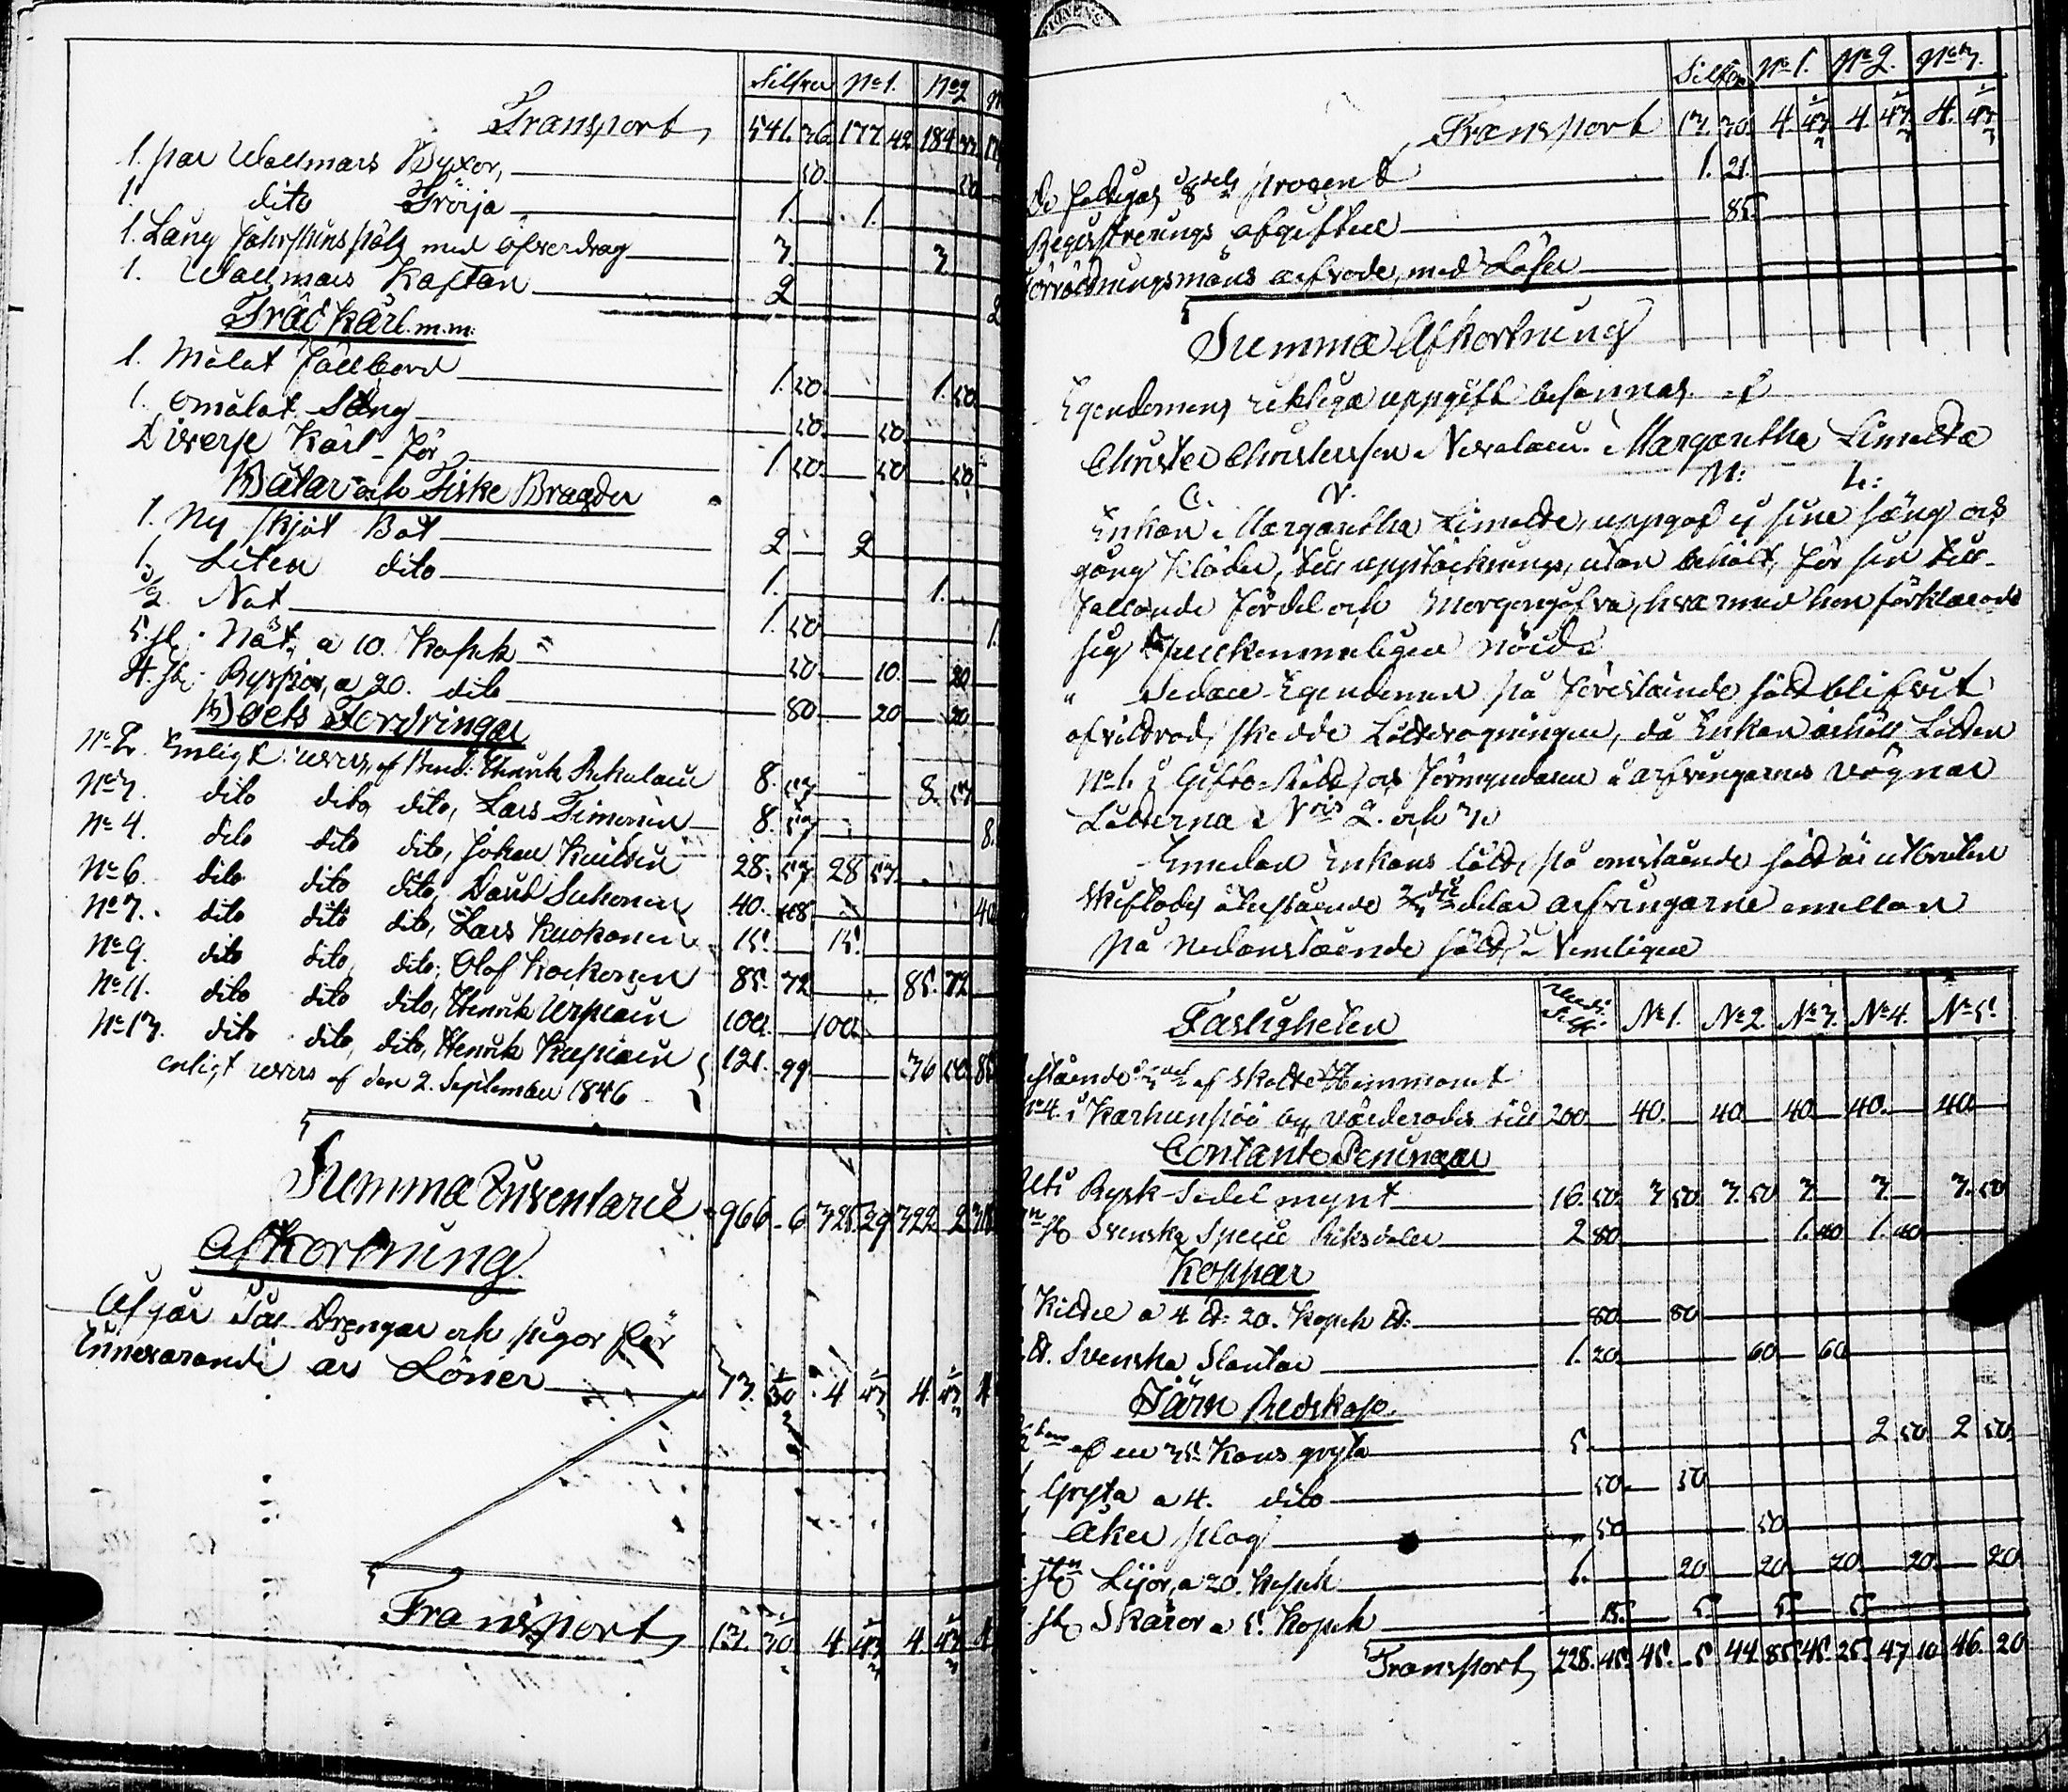 Silfver No 1. No 2
Transport 541. 36. 177. 42. 184. 33.
1. par Wallmars Byxor, 50. 50
1. dito Tröija 1. 1.
1. Lång fåhrskins päls med öfverdrag 3. 3
1. Wallmars Kaftan 2 2
Träd Kärl m.m:
1. Målat fällbord 1. 50. 1. 50.
1. omålat Säng 50. 50.
Diverse Kärl för 1. 50. 50 50.
Båtar och Fiske Bragder
1. Ny skjöt Båt 2 2
1. Liten dito 1. 1.
1/2. Not 1. 50 1.
5. st. Nät, a 10. Kopek 50 10. 20
4. st. Ryssjor, a 20. dito 80 20 20
Boets Fordringar
Enligt revers af Bend: Henrik 8. 57 8. 57
No 3. dito dito dito, Lars Simonen 8. 57 8.
No 4. dito dito dito, Johan 28. 57. 28 57.
No 6. dito dito dito, David Suhonen 40. 48 40
No 7. dito dito dito, Lars Kuokonen 15. 15.
No 9. dito dito dito, Olof Kockonen 85. 72 85. 72
No 11. dito dito dito, Henrik 100. 100.
No 13. dito dito, dito, Henrik 121. 99 36 50 85
enligt revers af den 2. September 1846
Summa Inventarie 966. 6 325. 29 322 2 318
Afkortning
Afgår för Drengar och pigor för
Innevarande års Löner 13. 30 4 43 4. 43 4
Transport 13. 30. 4 43 4. 43 4
Silfver No 1. No 2. No 3.
Transport 13. 30. 4. 43 4. 43. 4. 43
De fattigas 8dels prosent 1. 21.
Registrerings afgiften 85.
Förrättningsmans arfvode, med Lösen
Summa Afkortning
Egendomens riktiga uppgift besannas af
Christer Christersson Nevalain. Margaretha Limatta
C. N. M: L:
Enkan Margaretha Limatta, uppgaf ej sina säng och
gång kläder, till uppteckning, utan behölt, för sin till-
fallande fördel och Morgongåfva, hvarmed hon förklarade
sig fullkommeligen nöjd
" Sedan Egendomen på föreslående sätt blifvit
afvittrad, skedde Lottdragningen, då Enkan erhöll Lotten
No 1. i Gifto-Rätt, och Förmyndaren å arfvingarnes vägnar
Lotterna Nris 2. och 3.
Emedan Enkans lott, på omstående sätt är utbruten
skiftades återstående 2/3dedelar arfvingarne emellan
på nedanstående sätt, Nemligen
Fastigheten No 1. No 2. No 3. No 4. No 5.
af Skatte Hemmanet
No 4. i Karhunpää by, värderades till 200. 40. 40. 40. 40. 40
Contante Peningar
Uti Rysk Sedel mynt 16. 50. 3 50. 3. 50 3 3 3. 50
st. Svenska Specie Riksdaler 2 80. 1. 40 1. 40.
Koppar
Kittel a 4 ℔: 20. Kopek ℔: 80 80
℔. Svenska Slantar 1. 20. 60 60
Järn Redskap.
af en 35. Kans gryta 5. 2 50. 2 50.
Gryta a 4. dito 50. 50
Åker plog 50 50.
st. Lijor, a 20. Kopek 1. 20 20 20 20. 20.
st. Skäror a 5. Kopek 15. 5. 5. 5.
Transport 228. 45. 45. 5 44. 85. 45. 25. 47 10. 46. 20